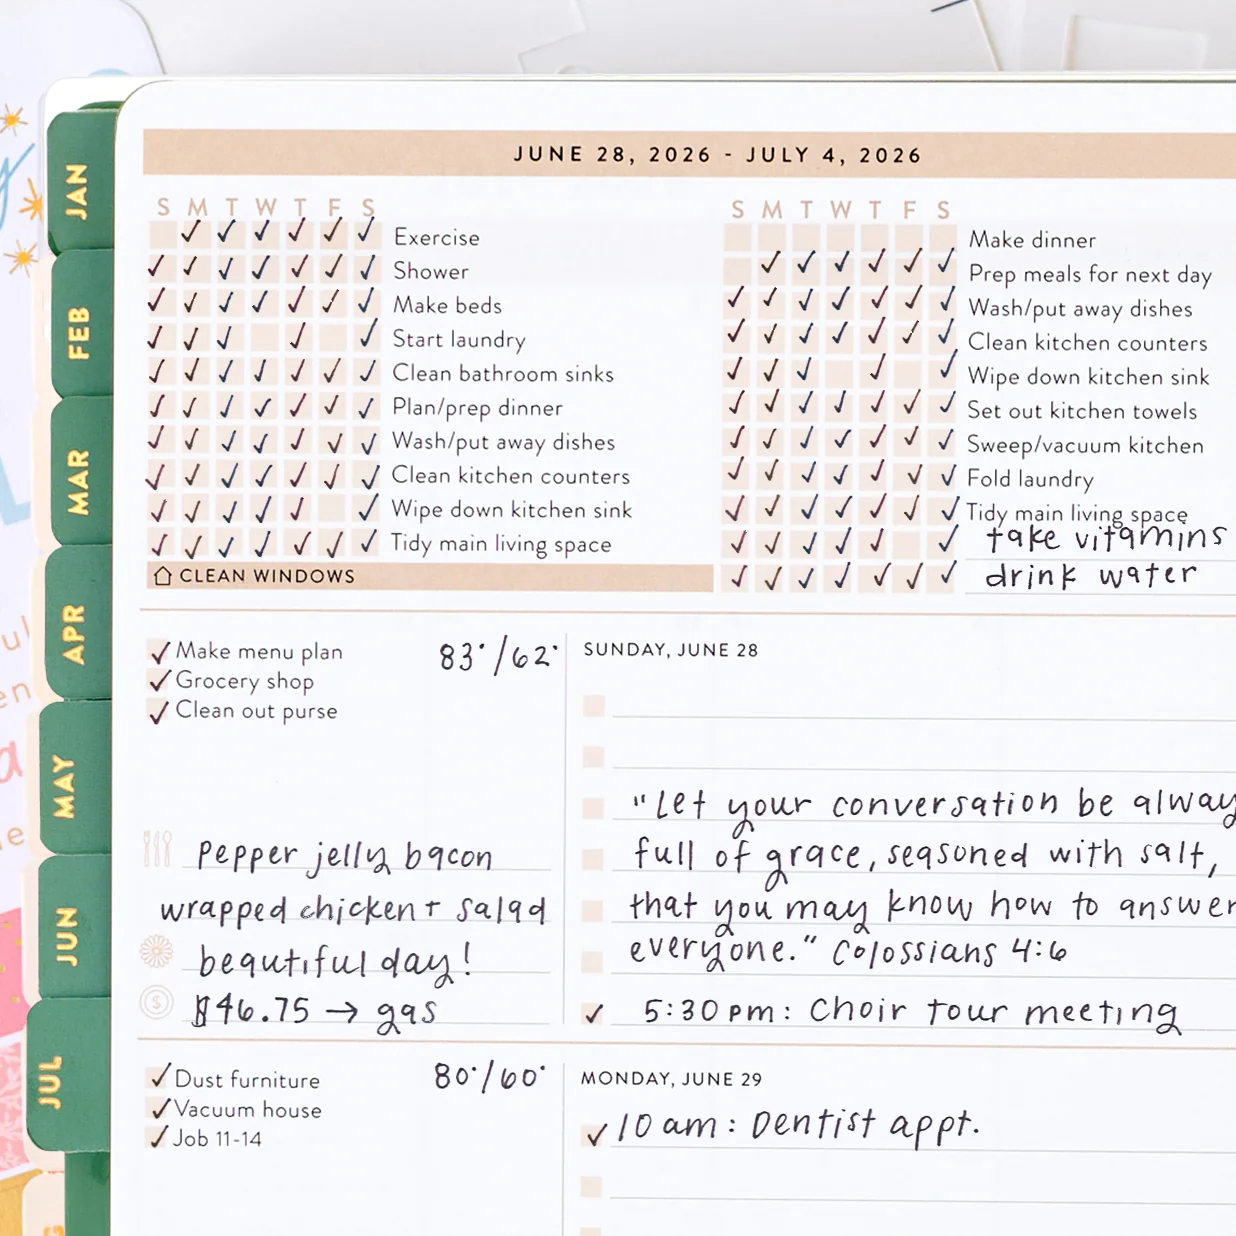 JUNE 28, 2026 - JULY 4, 2026
S M T W T F S
Exercise
Shower
Make beds
Start laundry
Clean bathroom sinks
Plan/prep dinner
Wash/put away dishes
Clean kitchen counters
Wipe down kitchen sink
Tidy main living space
CLEAN WINDOWS
S M T W T F S
Make dinner
Prep meals for next day
Wash/put away dishes
Clean kitchen counters
Wipe down kitchen sink
Set out kitchen towels
Sweep/vacuum kitchen
Fold laundry
Tidy main living space
take vitamins
drink water
Make menu plan
Grocery shop
Clean out purse
83°/62°
pepper jelly bacon
wrapped chicken + salad
beautiful day!
$46.75 → gas
SUNDAY, JUNE 28
"Let your conversation be alway
full of grace, seasoned with salt,
that you may know how to answer
everyone." Colossians 4:6
5:30 pm: Choir tour meeting
Dust furniture
Vacuum house
Job 11-14
80°/60°
MONDAY, JUNE 29
10 am: Dentist appt.
JAN
FEB
MAR
APR
MAY
JUN
JUL